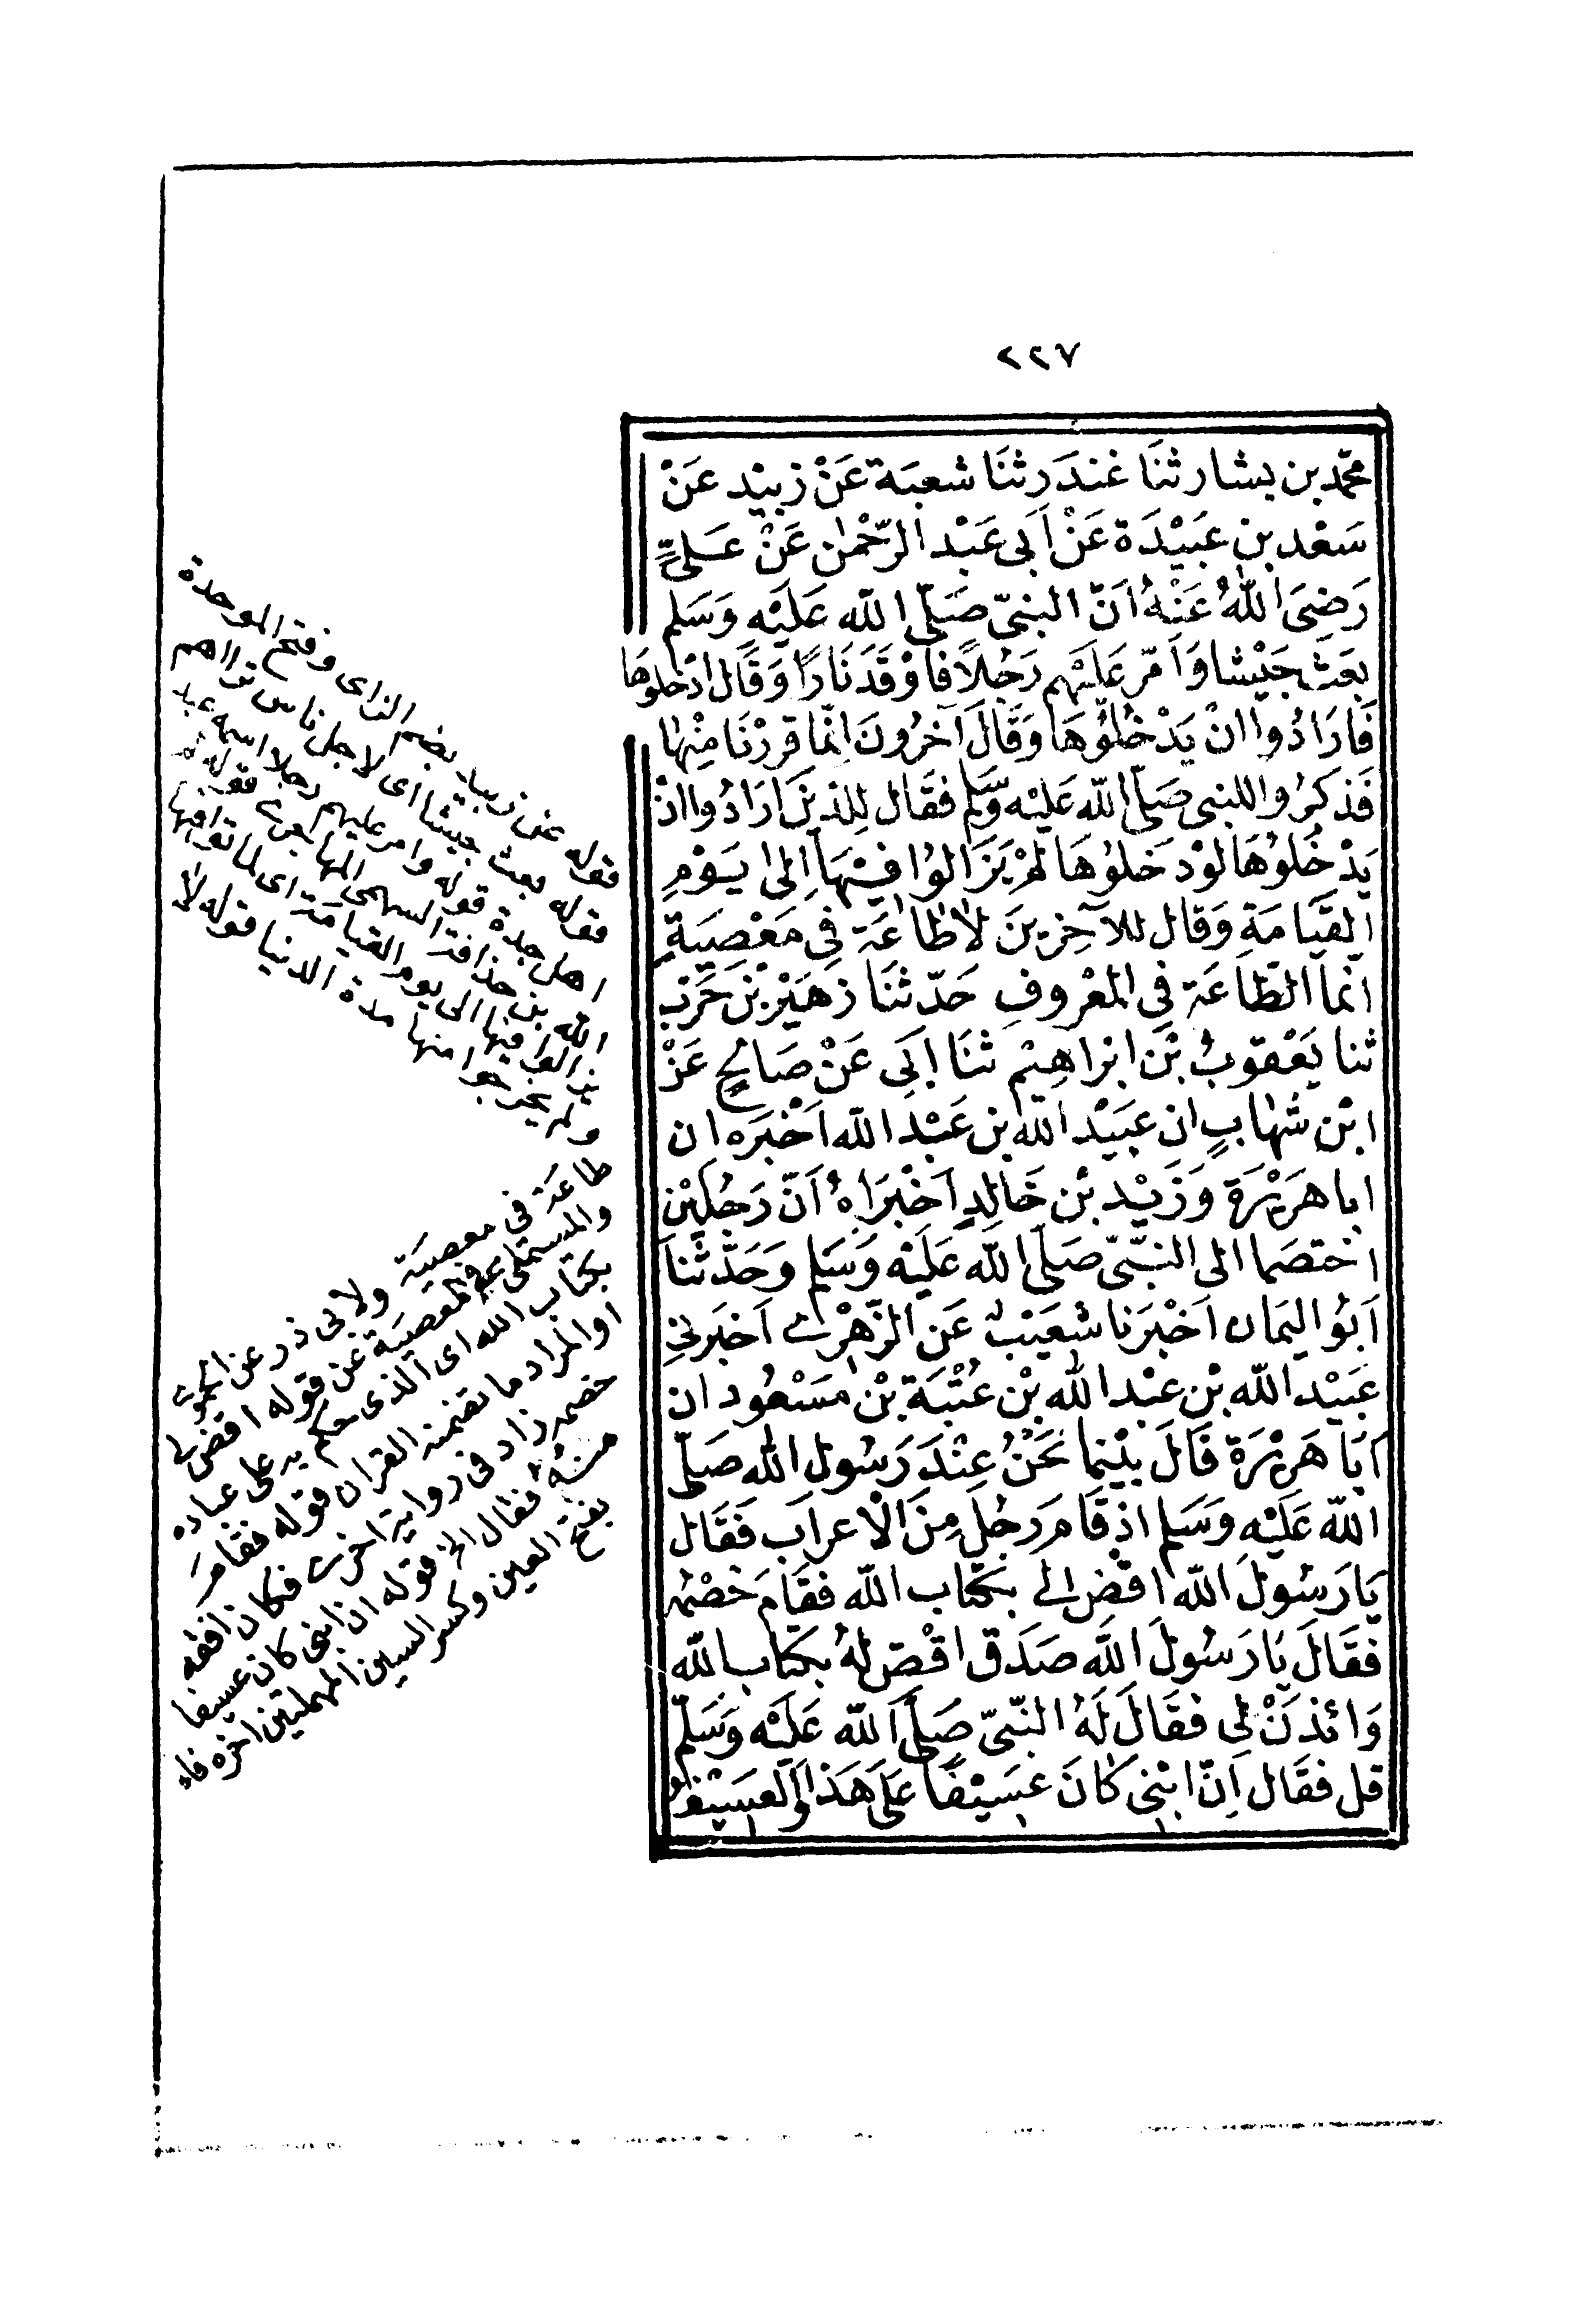 ٢٢٧
محمّد بن بشار ثنَا غندَر ثنَا شعبَة عَنْ زبيْد عَنْ
سَعْد بن عُبَيْدَة عَنْ اَبى عَبْد الرّحْمٰن عَنْ عَلىٍّ
رَضِىَ اللّٰهُ عَنْهُ اَنّ النبىّ صَلّى اللّه عَليْه وَسَلم
بعَث جَيْشا وَاَمّر عَليْهم رَجُلاً فاَوْقَدَ نَارًا وَقَال ادْخلوهَا
فَارَادُوا انْ يَدْخُلُوُهَا وَقَالَ آخرُونَ اِنّما فررْنَا مِنْهَا
فَذكَرُوا للنبى صَلّى اللّه عَليْه وَسَّلم فقَال لِلذينَ ارَادُوا انْ
يَدْخُلوُهَا لوْ دخَلوُهَا لمْ يَزَالوُا فيْهَا اِلىٰ يَوْمِ
القيَامَةِ وَقَال للآخِرينَ لاَطاعَة فِى مَعْصِيَةٍ
انّما الطّاعَة فِى المَعْروفِ حَدّثنَا زهَيْر بْن حَرْب
ثنا يَعْقوبُ بْن ابْراهِيْم ثنَا اَبِى عَنْ صَالحٍ عَنْ
ابْن شهَابٍ ان عبَيْد اللّه بن عَبْد اللّه اَخْبَره ان
ابا هرَيْرَة وَزَيْد بْن خَالدٍ اَخْبَرَاهُ اَنّ رَجُليْن
اختصَما الى النبّىّ صَلى اللّه عَليْه وَسَلم وَحَدّثنَا
اَبُو اليَمان اَخْبَرَنا شعَيْبٌ عَن الزّهْرى اَخبَرنِى
عبَيْد اللّه بْن عبْد اللّه بْن عُتْبَة بْن مَسْعُود ان
اَبَا هرَيْرَة قَالَ بيْنما نَحْنُ عِنْدَ رَسُولِ اللّه صَلّى
اللّه عَليْه وَسَلم اذ قَامَ رَجُلٌ مِنَ الْاعرَاب فَقَال
يَا رَسُولَ اللّه اقْض لى بكتَاب اللّه فقَامَ خَصْمُه
فقَالَ يَا رَسُولَ اللَّه صَدَق اقْض لهُ بكتَاب اللّه
وَائذنْ لِى فقَالَ لَهُ النبّىّ صَلّى اَللّه عَليْه وَسَلّم
قل فقَال اِنّ ابْنى كَانَ عَسيْفًا عَلى هَذا وَالعَسيْفُ
قوله عن زبيد بضم الزاى وفتح الموحدة
قوله بعث جيشا اى لاجل ناس تراآهم
اهل جدة قوله وامر عليهم رجلا اسمه عبد
الله بن حذافة السهمى المهاجرى قوله لم
يزالوا فيها الى يوم القيامة اى لماتوا فيها
ولم يخرجوا منها مدة الدنيا قوله لا
طاعة فى معصية ولابى ذر عن الحموى
والمستملى فى المعصية عن قوله اقض لى
بكتاب الله اى الذى حكم به على عباده
او المراد ما تضمنه القران قوله فقام
خصمه زاد فى رواية اخرى فكان افقه
منه فقال الخ قوله ان ابنى كان عسيفا
بفتح العين وكسر السين المهملتين اخره فاء